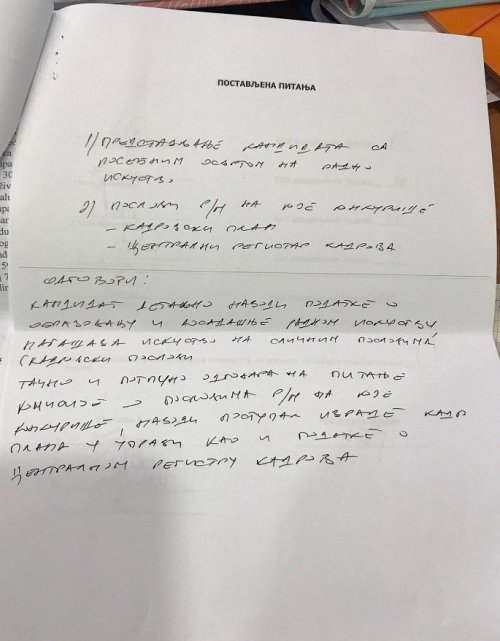 ПОСТАВЉЕНА ПИТАЊА
1) ПРЕДСТАВЉАЊЕ КАНДИДАТА СА
ПОСЕБНИМ ОСВРТОМ НА РАДНО
ИСКУСТВО
2) ПОСЛОВИ Р/М НА КОЈЕ КОНКУРИШЕ
– КАДРОВСКИ ПЛАН
– ЦЕНТРАЛНИ РЕГИСТАР КАДРОВА
ОДГОВОРИ:
КАНДИДАТ ДЕТАЉНО НАВОДИ ПОДАТКЕ О
ОБРАЗОВАЊУ И ДОСАДАШЊЕ РАДНОМ ИСКУСТВУ,
НАГЛАШАВА ИСКУСТВО НА СЛИЧНИМ ПОСЛОВИМА,
(КАДРОВСКИ ПОСЛОВИ
ТАЧНО И ПОТПУНО ОДГОВАРА НА ПИТАЊЕ
КОМИСИЈЕ О ПОСЛОВИМА Р/М НА КОЈЕ
КОНКУРИШЕ, НАВОДИ ПОСТУПАК ИЗРАДЕ КАДР
ПЛАНА У УПРАВИ КАО И ПОДАТКЕ О
ЦЕНТРАЛНОМ РЕГИСТРУ КАДРОВА